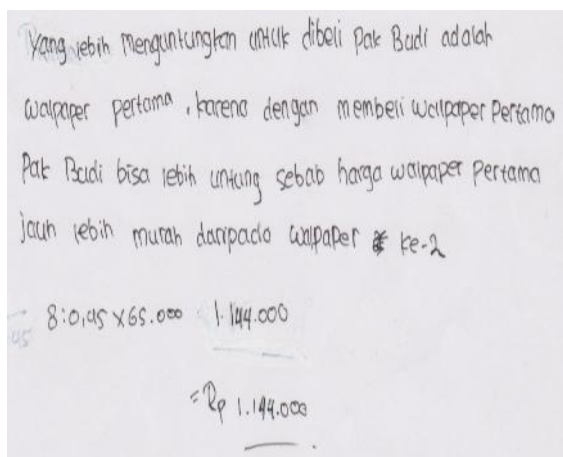 Yang lebih menguntungkan untuk dibeli Pak Budi adalah
walpaper pertama, karena dengan membeli wallpaper Pertama
Pak Budi bisa lebih untung sebab harga walpaper pertama
jauh lebih murah daripada walpaper ke-2
8:0,45 x 65.000 1.144.000
= Rp 1.144.000